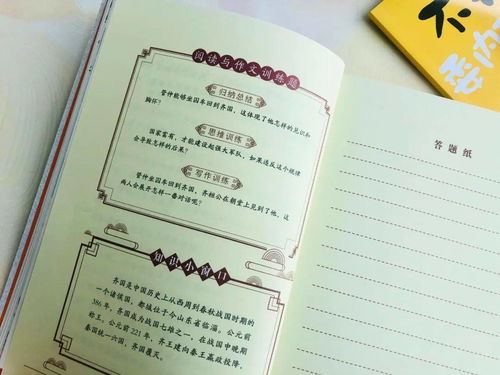 阅读与作文训练题
归纳总结
管仲能够坐囚车回到齐国，这体现了他怎样的见识和
胸怀？
思维训练
国家富有，才能建设起强大军队，如果违反这个规律
会导致怎样的后果？
写作训练
管仲坐囚车回到齐国，齐桓公在朝堂上见到了他，这
两人会展开怎样一番对话呢？
知识小窗口
齐国是中国历史上从西周到春秋战国时期的
一个诸侯国，都城位于今山东省临淄。公元前
386年，齐国成为战国七雄之一，在战国中晚期
称王，公元前221年，齐王建向秦王嬴政投降，
秦国统一六国，齐国覆灭。
答题纸